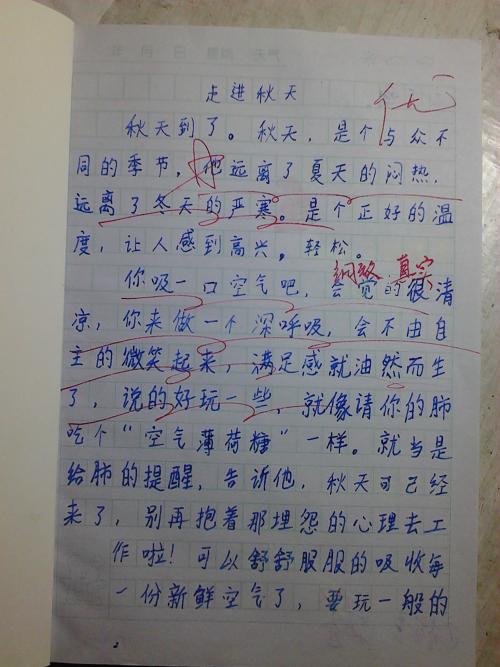 走进秋天
优
秋天到了。秋天,是个与众不
同的季节,他远离了夏天的闷热,
远离了冬天的严寒。是个正好的温
度,让人感到高兴,轻松。
细致 真实
你吸一口空气吧,会觉的很清
凉,你来做一个深呼吸,会不由自
主的微笑起来,满足感就油然而生
了,说的好玩一些,就像请你的肺
吃个“空气薄荷糖”一样。就当是
给肺的提醒,告诉他,秋天可已经
来了,别再抱着那埋怨的心理去工
作啦!可以舒舒服服的吸收每
一份新鲜空气了,要玩一般的
2